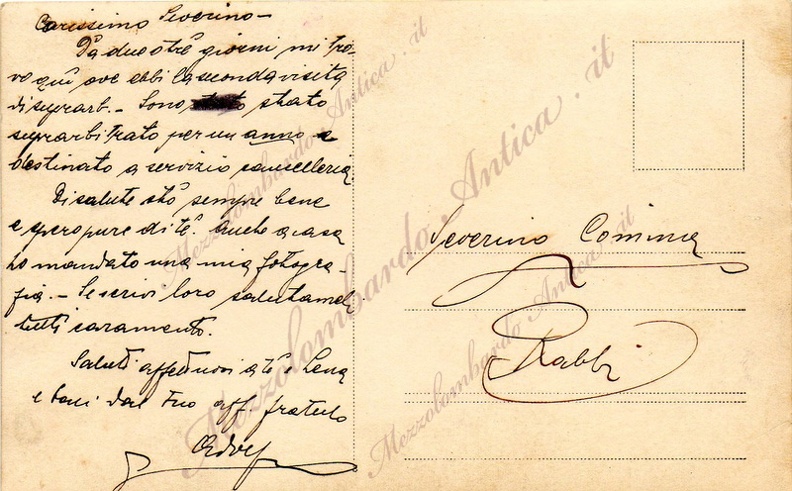 Carissimo Severino -
Da due o tre giorni mi tro-
vo quì ove ebbi la seconda visita
di suprarb. - Sono stato
suprarbitrato per un anno e
destinato a servizio cancelleria
Di salute stò sempre bene
e spero pure di tè. Anche a casa
ho mandato una mia fotogra-
fia. - Se scrivi loro salutameli
tutti caramente.
Saluti affettuosi a tè e Lena
e baci dal tuo aff. fratello
Severino Comina
Rabbi
Mezzolombardo Antica.it
Mezzolombardo Antica.it
Mezzolombardo Antica.it